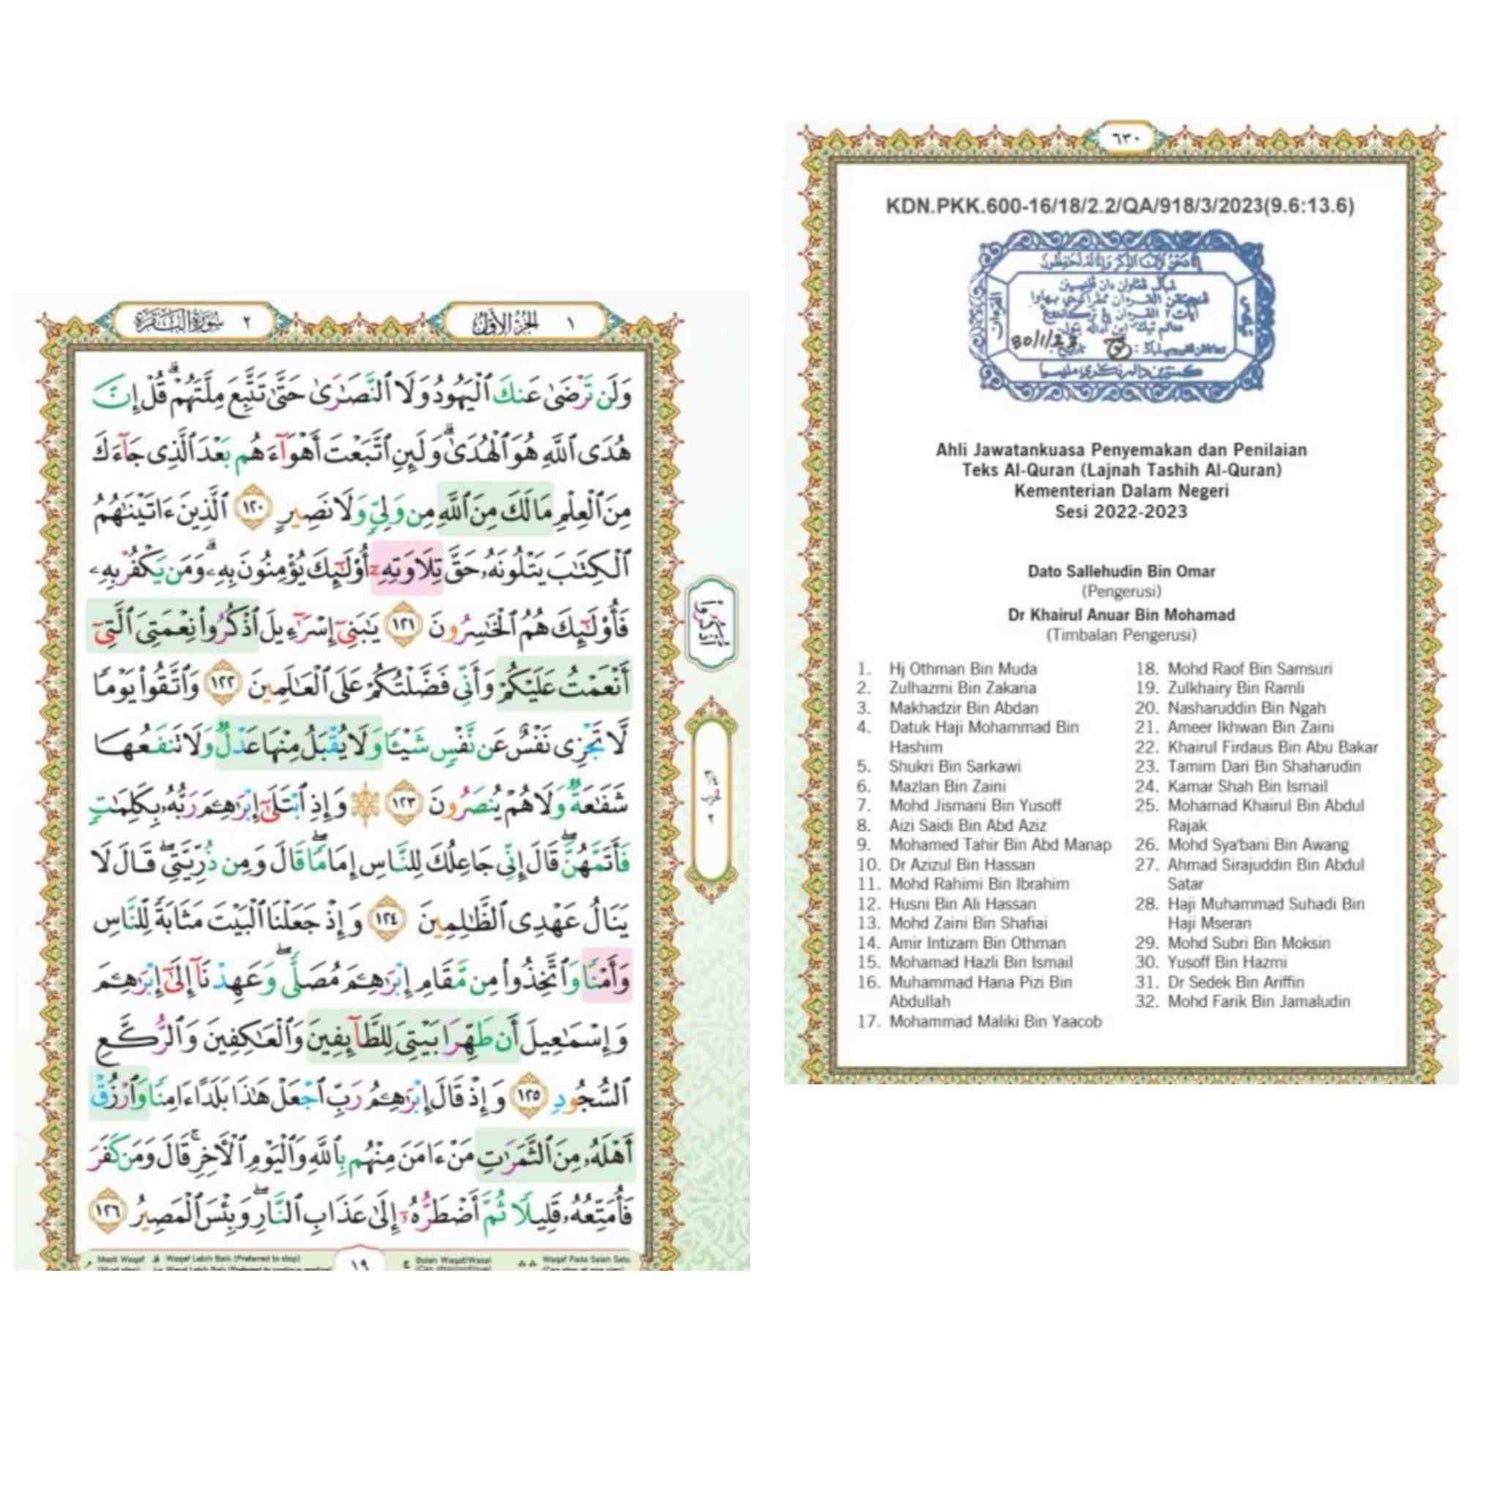 ٢ سورة البقرة
الجزء الأول ١
وَلَن تَرْضَىٰ عَنكَ ٱلْيَهُودُ وَلَا ٱلنَّصَـٰرَىٰ حَتَّىٰ تَتَّبِعَ مِلَّتَهُمْ ۗ قُلْ إِنَّ
هُدَى ٱللَّهِ هُوَ ٱلْهُدَىٰ ۗ وَلَئِنِ ٱتَّبَعْتَ أَهْوَآءَهُم بَعْدَ ٱلَّذِى جَآءَكَ
مِنَ ٱلْعِلْمِ مَا لَكَ مِنَ ٱللَّهِ مِن وَلِىٍّ وَلَا نَصِيرٍ ١٢٠ ٱلَّذِينَ ءَاتَيْنَـٰهُمُ
ٱلْكِتَـٰبَ يَتْلُونَهُۥ حَقَّ تِلَاوَتِهِۦٓ أُو۟لَـٰٓئِكَ يُؤْمِنُونَ بِهِۦ ۗ وَمَن يَكْفُرْ بِهِۦ
فَأُو۟لَـٰٓئِكَ هُمُ ٱلْخَـٰسِرُونَ ١٢١ يَـٰبَنِىٓ إِسْرَٰٓءِيلَ ٱذْكُرُوا۟ نِعْمَتِىَ ٱلَّتِىٓ
أَنْعَمْتُ عَلَيْكُمْ وَأَنِّى فَضَّلْتُكُمْ عَلَى ٱلْعَـٰلَمِينَ ١٢٢ وَٱتَّقُوا۟ يَوْمًا
لَّا تَجْزِى نَفْسٌ عَن نَّفْسٍ شَيْـًٔا وَلَا يُقْبَلُ مِنْهَا عَدْلٌ وَلَا تَنفَعُهَا
شَفَـٰعَةٌ وَلَا هُمْ يُنصَرُونَ ١٢٣ ۞ وَإِذِ ٱبْتَلَىٰٓ إِبْرَٰهِـۧمَ رَبُّهُۥ بِكَلِمَـٰتٍ
فَأَتَمَّهُنَّ ۖ قَالَ إِنِّى جَاعِلُكَ لِلنَّاسِ إِمَامًا ۖ قَالَ وَمِن ذُرِّيَّتِى ۖ قَالَ لَا
يَنَالُ عَهْدِى ٱلظَّـٰلِمِينَ ١٢٤ وَإِذْ جَعَلْنَا ٱلْبَيْتَ مَثَابَةً لِّلنَّاسِ
وَأَمْنًا وَٱتَّخِذُوا۟ مِن مَّقَامِ إِبْرَٰهِـۧمَ مُصَلًّى ۖ وَعَهِدْنَآ إِلَىٰٓ إِبْرَٰهِـۧمَ
وَإِسْمَـٰعِيلَ أَن طَهِّرَا بَيْتِىَ لِلطَّآئِفِينَ وَٱلْعَـٰكِفِينَ وَٱلرُّكَّعِ
ٱلسُّجُودِ ١٢٥ وَإِذْ قَالَ إِبْرَٰهِـۧمُ رَبِّ ٱجْعَلْ هَـٰذَا بَلَدًا ءَامِنًا وَٱرْزُقْ
أَهْلَهُۥ مِنَ ٱلثَّمَرَٰتِ مَنْ ءَامَنَ مِنْهُم بِٱللَّهِ وَٱلْيَوْمِ ٱلْـَٔاخِرِ ۖ قَالَ وَمَن كَفَرَ
فَأُمَتِّعُهُۥ قَلِيلًا ثُمَّ أَضْطَرُّهُۥٓ إِلَىٰ عَذَابِ ٱلنَّارِ ۖ وَبِئْسَ ٱلْمَصِيرُ ١٢٦
Waqaf Lebih Baik (Preferred to stop)
Boleh Waqaf/Wasal
Waqaf Pada Salah Satu
١٩
٦٣٠
KDN.PKK.600-16/18/2.2/QA/918/3/2023(9.6:13.6)
30/1/23
Ahli Jawatankuasa Penyemakan dan Penilaian
Teks Al-Quran (Lajnah Tashih Al-Quran)
Kementerian Dalam Negeri
Sesi 2022-2023
Dato Sallehudin Bin Omar
(Pengerusi)
Dr Khairul Anuar Bin Mohamad
(Timbalan Pengerusi)
1. Hj Othman Bin Muda
2. Zulhazmi Bin Zakaria
3. Makhadzir Bin Abdan
4. Datuk Haji Mohammad Bin
Hashim
5. Shukri Bin Sarkawi
6. Mazlan Bin Zaini
7. Mohd Jismani Bin Yusoff
8. Aizi Saidi Bin Abd Aziz
9. Mohamed Tahir Bin Abd Manap
10. Dr Azizul Bin Hassan
11. Mohd Rahimi Bin Ibrahim
12. Husni Bin Ali Hassan
13. Mohd Zaini Bin Shafiai
14. Amir Intizam Bin Othman
15. Mohamad Hazli Bin Ismail
16. Muhammad Hana Pizi Bin
Abdullah
17. Mohammad Maliki Bin Yaacob
18. Mohd Raof Bin Samsuri
19. Zulkhairy Bin Ramli
20. Nasharuddin Bin Ngah
21. Ameer Ikhwan Bin Zaini
22. Khairul Firdaus Bin Abu Bakar
23. Tamim Dari Bin Shaharudin
24. Kamar Shah Bin Ismail
25. Mohamad Khairul Bin Abdul
Rajak
26. Mohd Sya'bani Bin Awang
27. Ahmad Sirajuddin Bin Abdul
Satar
28. Haji Muhammad Suhadi Bin
Haji Mseran
29. Mohd Subri Bin Moksin
30. Yusoff Bin Hazmi
31. Dr Sedek Bin Ariffin
32. Mohd Farik Bin Jamaludin